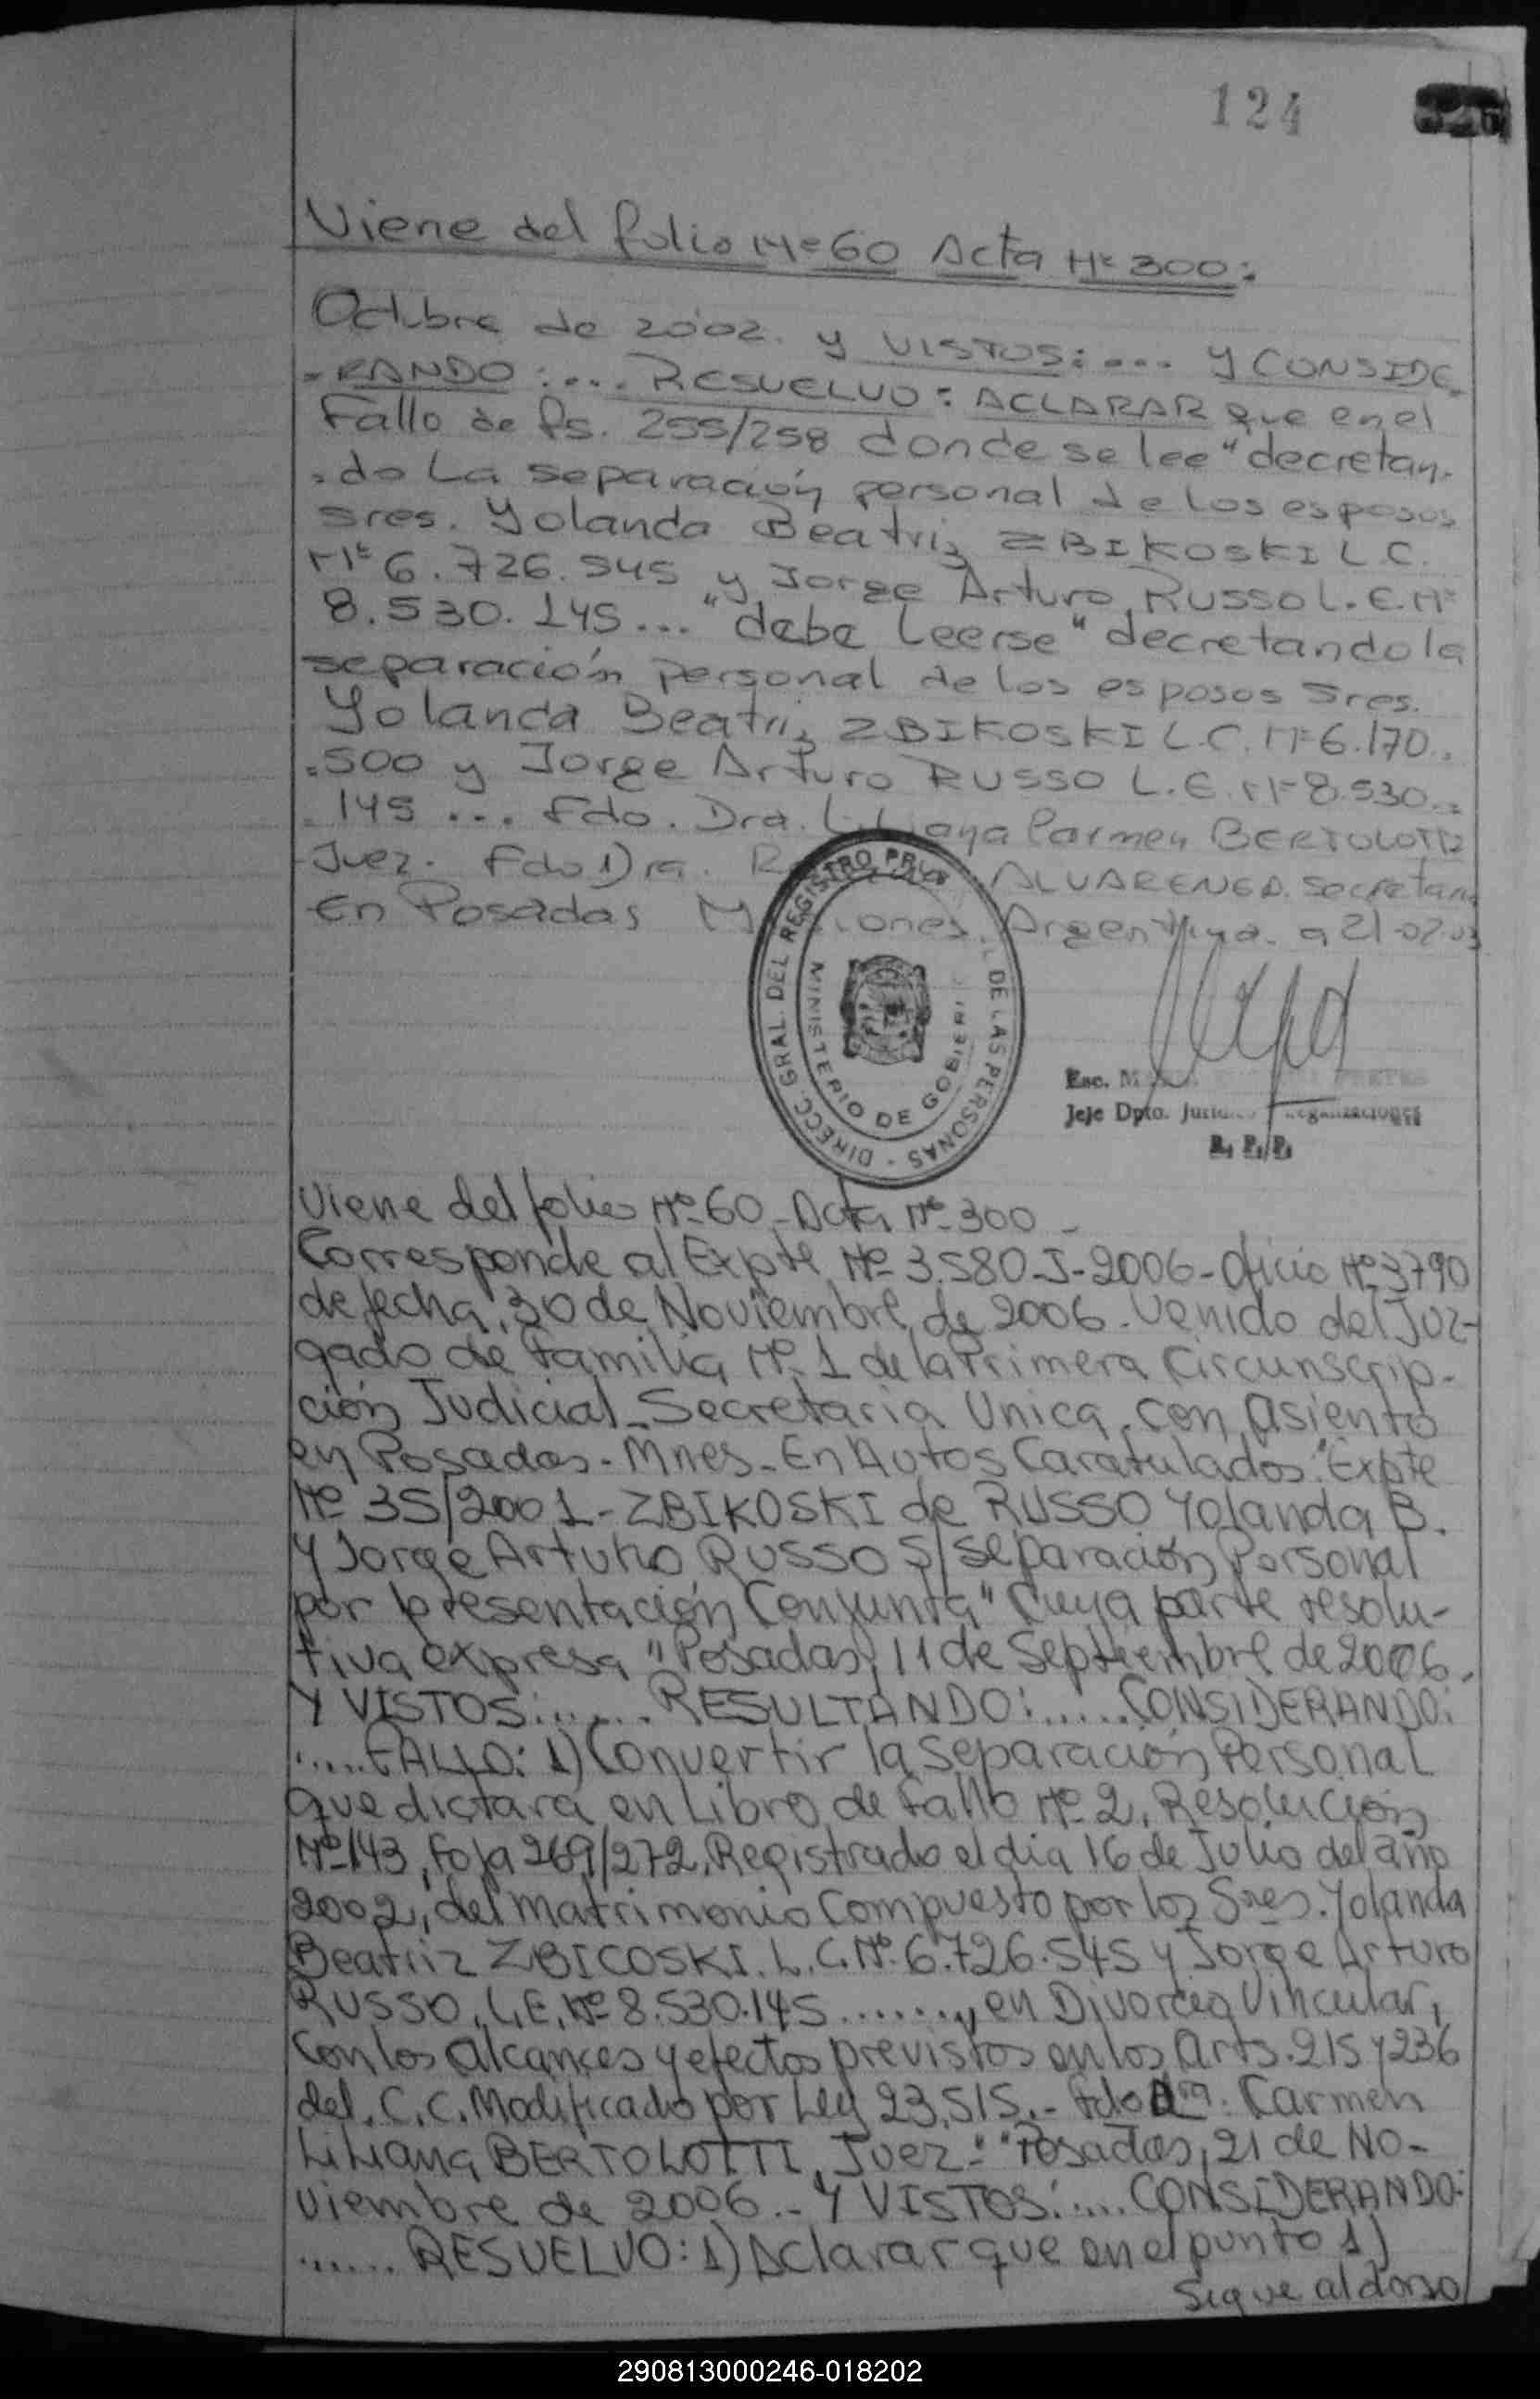 124
Viene del folio Nº 60 Acta Nº 300:
Octubre de 2002. y VISTOS: ... y CONSIDE-
-RANDO: ... RESUELVO: ACLARAR que en el
Fallo de fs. 255/258 donde se lee "decretan-
-do La separación personal de los esposos
Sres. Yolanda Beatriz ZBIKOSKI L.C.
Nº 6.726.545 y Jorge Arturo RUSSO L.E. Nº
8.530.145 ... "debe Leerse" decretando la
separación personal de los esposos Sres.
Yolanda Beatriz ZBIKOSKI L.C. Nº 6.170.
.500 y Jorge Arturo RUSSO L.E. Nº 8.530.-
.145 ... Fdo. Dra. Liliana Carmen BERTOLOTTI
Juez. Fdo Dra. ALVARENGA. Secretaria
En Posadas Misiones. Argentina. a 21-02-03
DIRECC. GRAL. DEL REGISTRO PROV. DE LAS PERSONAS -
MINISTERIO DE GOBIERNO
Esc.
Jefe Dpto. Jurídico
R. P. P.
Viene del folio Nº 60 - Acta Nº 300 -
Corresponde al Expte Nº 3.580-J-2006 - Oficio Nº 3790
de fecha, 30 de Noviembre de 2006 - Venido del Juz-
gado de Familia Nº 1 de la Primera Circunscrip-
ción Judicial - Secretaria Unica, con asiento
en Posadas - Mnes - En Autos Caratulados: "Expte
Nº 35/2001 - ZBIKOSKI de RUSSO Yolanda B.
y Jorge Arturo RUSSO S/ Separación Personal
por presentación Conjunta" Cuya parte resolu-
tiva expresa "Posadas, 11 de Septiembre de 2006.
Y VISTOS: ...... RESULTANDO: ..... CONSIDERANDO:
..... FALLO: 1) Convertir la Separación Personal
que dictara en Libro de Fallo Nº 2, Resolución
Nº 143, Foja 269/272, Registrado el día 16 de Julio del año
2002, del matrimonio Compuesto por los Sres. Yolanda
Beatriz ZBICOSKI. L.C. Nº 6.726.545 y Jorge Arturo
RUSSO, L.E. Nº 8.530.145 ......., en Divorcio Vincular,
Con los alcances y efectos previstos en los Arts. 215 y 236
del. C.C. Modificado por Ley 23.515.- Fdo Dra. Carmen
Liliana BERTOLOTTI, Juez -" "Posadas, 21 de No-
viembre de 2006 .- Y VISTOS: .... CONSIDERANDO:
...... RESUELVO: 1) Aclarar que en el punto 1)
Sigue al dorso
290813000246-018202